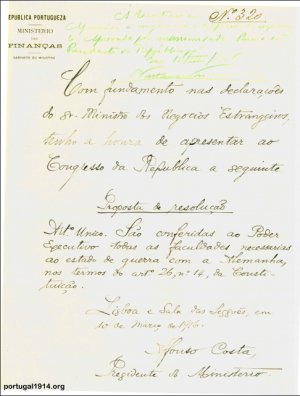 REPUBLICA PORTUGUEZA
MINISTERIO
DAS
FINANÇAS
GABINETE DO MINISTRO
Nº 320
Com fundamento nas declarações
do Sr. Ministro dos Negocios Estrangeiros,
tenho a honra de apresentar ao
Congresso da Republica a seguinte
Proposta de resolução
Artº Unico. São conferidas ao Poder
Executivo todas as faculdades necessarias
ao estado de guerra com a Alemanha,
nos termos do artº 26, nº 14, da Consti-
tuição.
Lisboa e Sala das Sessões, em
10 de Março de 1916.
Afonso Costa,
Presidente do Ministerio.
portugal1914.org